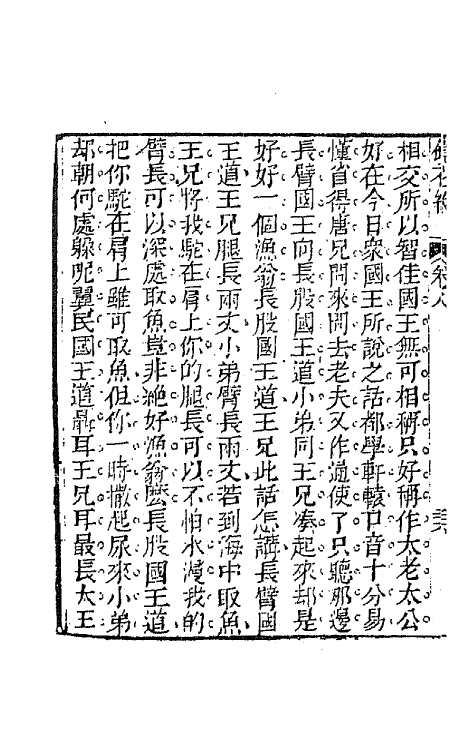 卷八
相交所以智佳國王無可相稱只好稱作太老太公
好在今日衆國王所說之話都學軒轅口音十分易
懂省得唐兄問來問去老夫又作通使了只聽那邊
長臂國王向長股國王道小弟同王兄湊起來却是
好好一個漁翁長股國王道王兄此話怎講長臂國
王道王兄腿長兩丈小弟臂長兩丈若到海中取魚
王兄將我駝在肩上你的腿長可以不怕水漫我的
臂長可以深處取魚豈非絶好漁翁麽長股國王道
把你駝在肩上雖可取魚但你一時撒起尿來小弟
却朝何處躲呢翼民國王道聶耳王兄耳最長大王